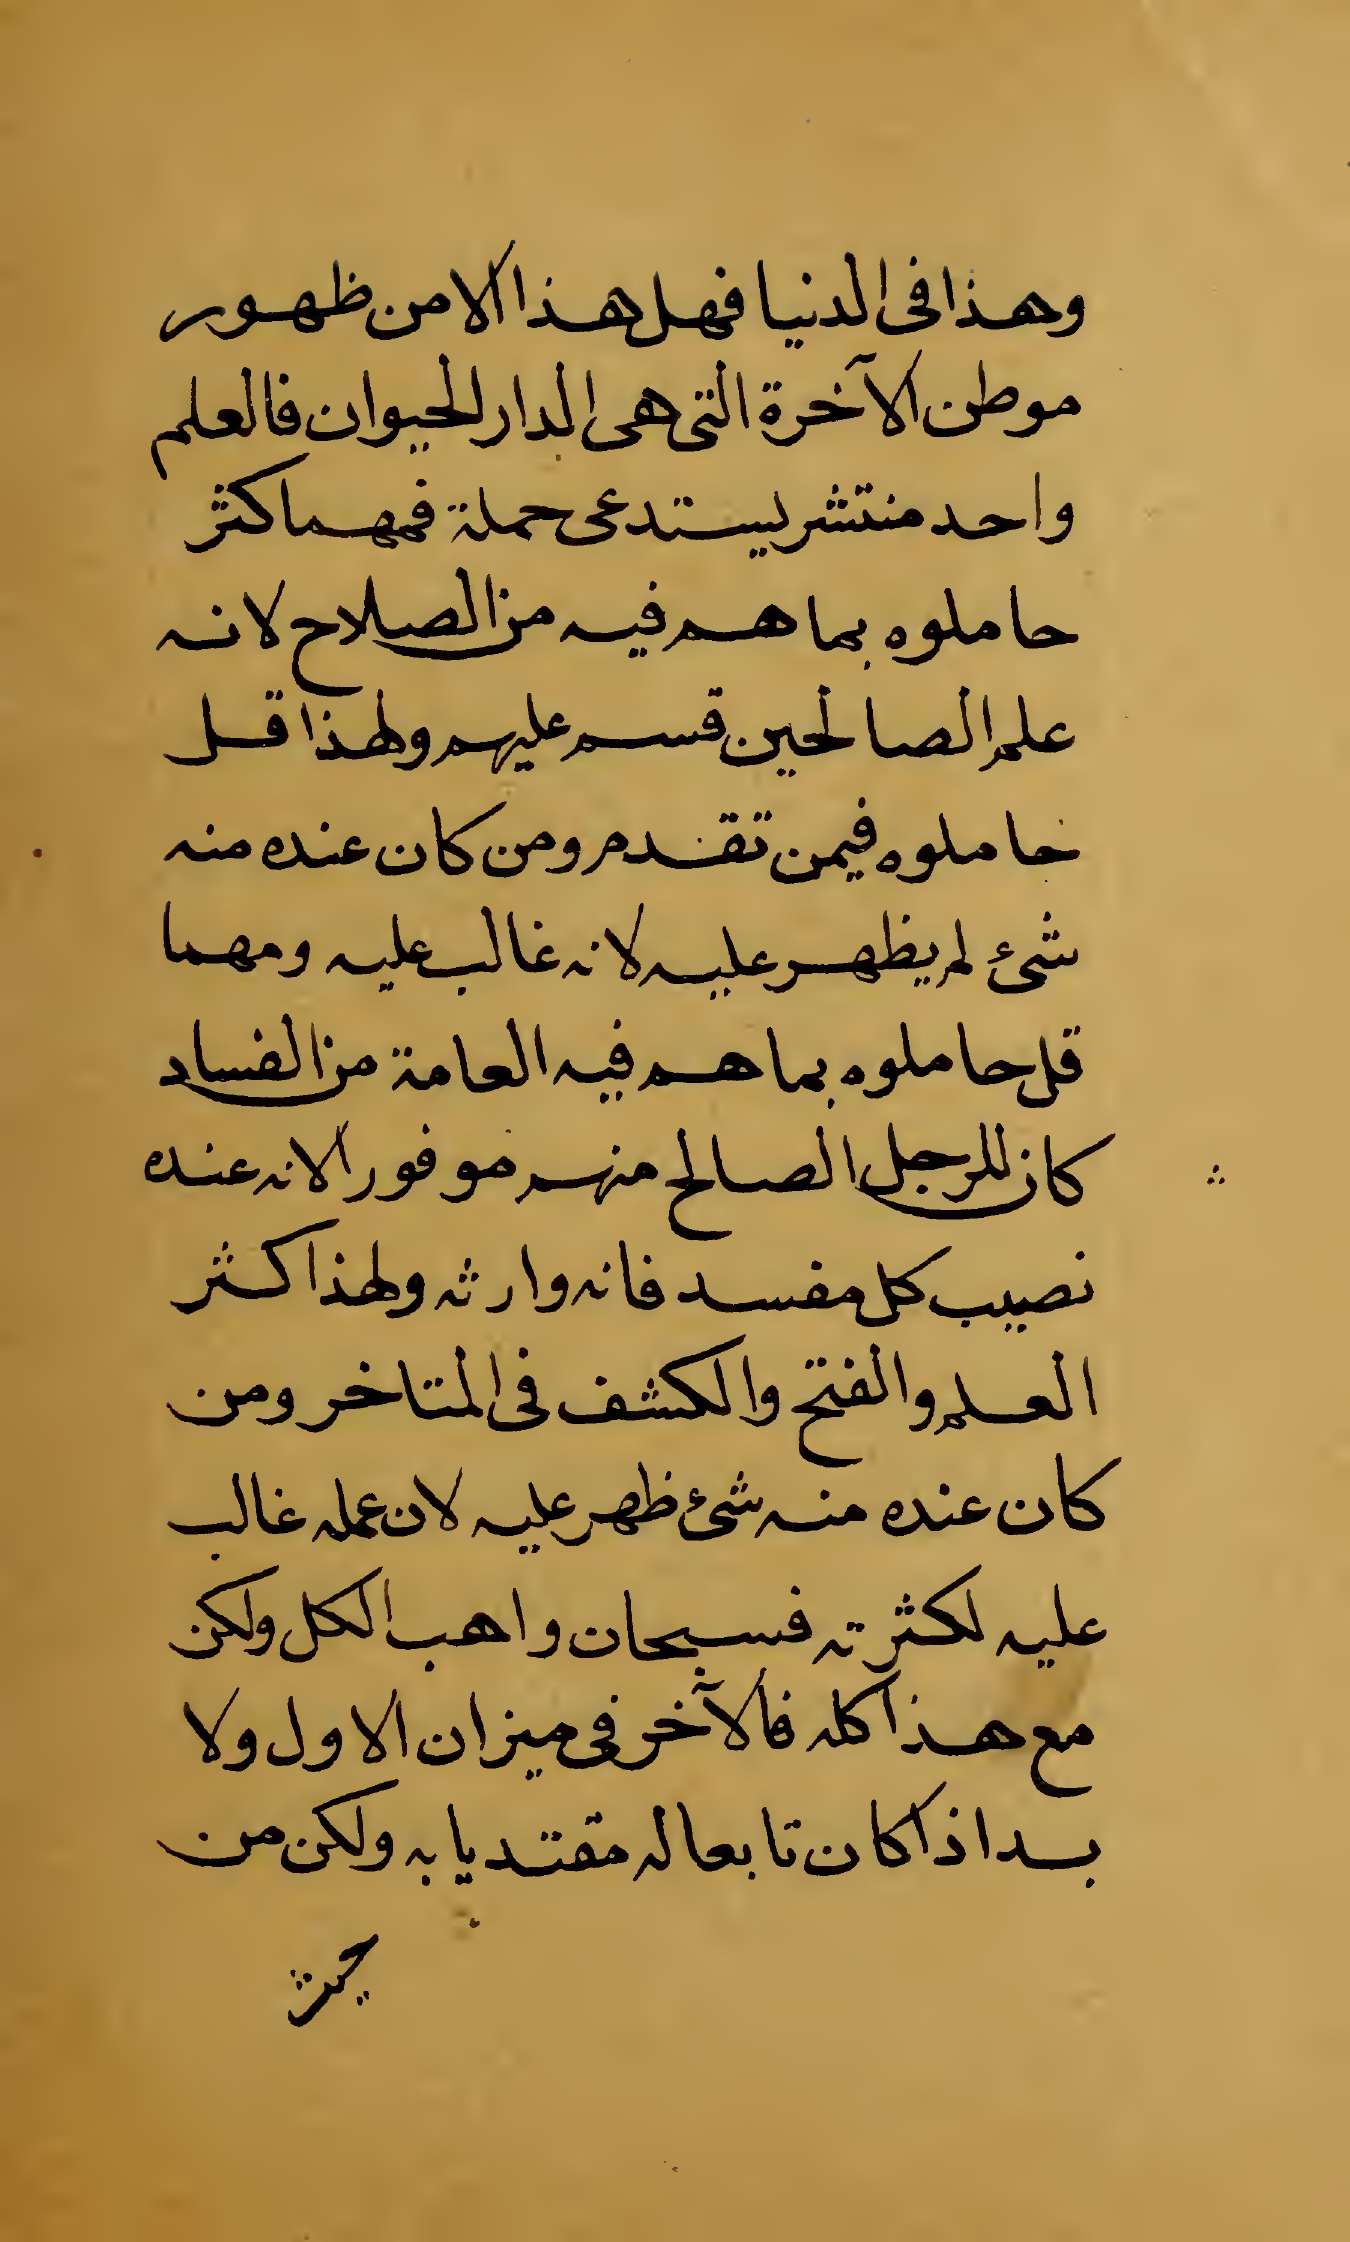 وهذا فى الدنيا فهل هذا الا من ظهور
موطن الآخرة التى هى الدار الحيوان فالعلم
واحد منتشر يستدعى حملة فمهما كثر
حاملوه بما هم فيه من الصلاح لانه
علم الصالحين قسم عليهم ولهذا قل
حاملوه فيمن تقدم ومن كان عنده منه
شئ لم يظهر عليه لانه غالب عليه ومهما
قل حاملوه بما هم فيه العامة من الفساد
كان للرجل الصالح منهم موفورا لانه عنده
نصيب كل مفسد فانه وارثه ولهذا كثر
العلم والفتح والكشف فى المتاخر ومن
كان عنده منه شئ ظهر عليه لان عمله غالب
عليه لكثرته فسبحان واهب الكل ولكن
مع هذا كله فالآخر فى ميزان الاول ولا
بد اذا كان تابعا له مقتديا به ولكن من
حيث